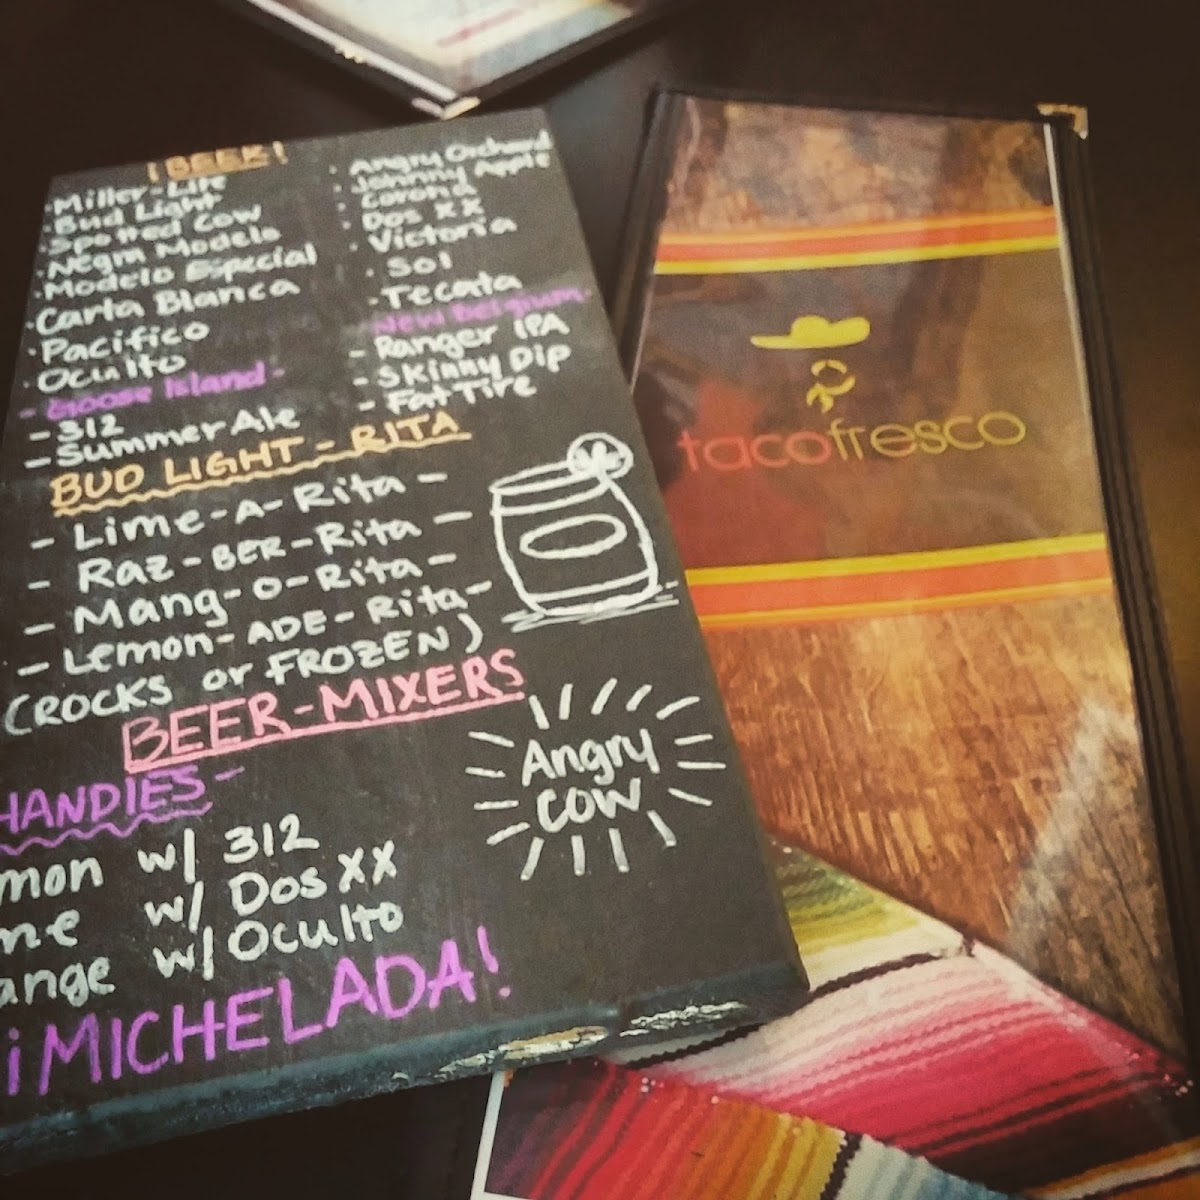 ¡BEER!
·Miller-Lite
·Bud Light
·Spotted Cow
·Negra Modelo
·Modelo Especial
·Carta Blanca
·Pacifico
·Oculto
- Goose Island -
- 312
- Summer Ale
· Angry Orchard
· Johnny Apple
· Corona
· Dos XX
· Victoria
· Sol
· Tecata
- New Belgium -
- Ranger IPA
- Skinny Dip
- Fat Tire
BUD LIGHT - RITA
- Lime-A-Rita -
- Raz-BER-Rita -
- Mang-O-Rita -
- Lemon-ADE-Rita -
(ROCKS or FROZEN)
BEER-MIXERS
HANDIES -
mon w/ 312
me w/ Dos XX
ange w/ Oculto
¡MICHELADA!
Angry
COW
tacofresco